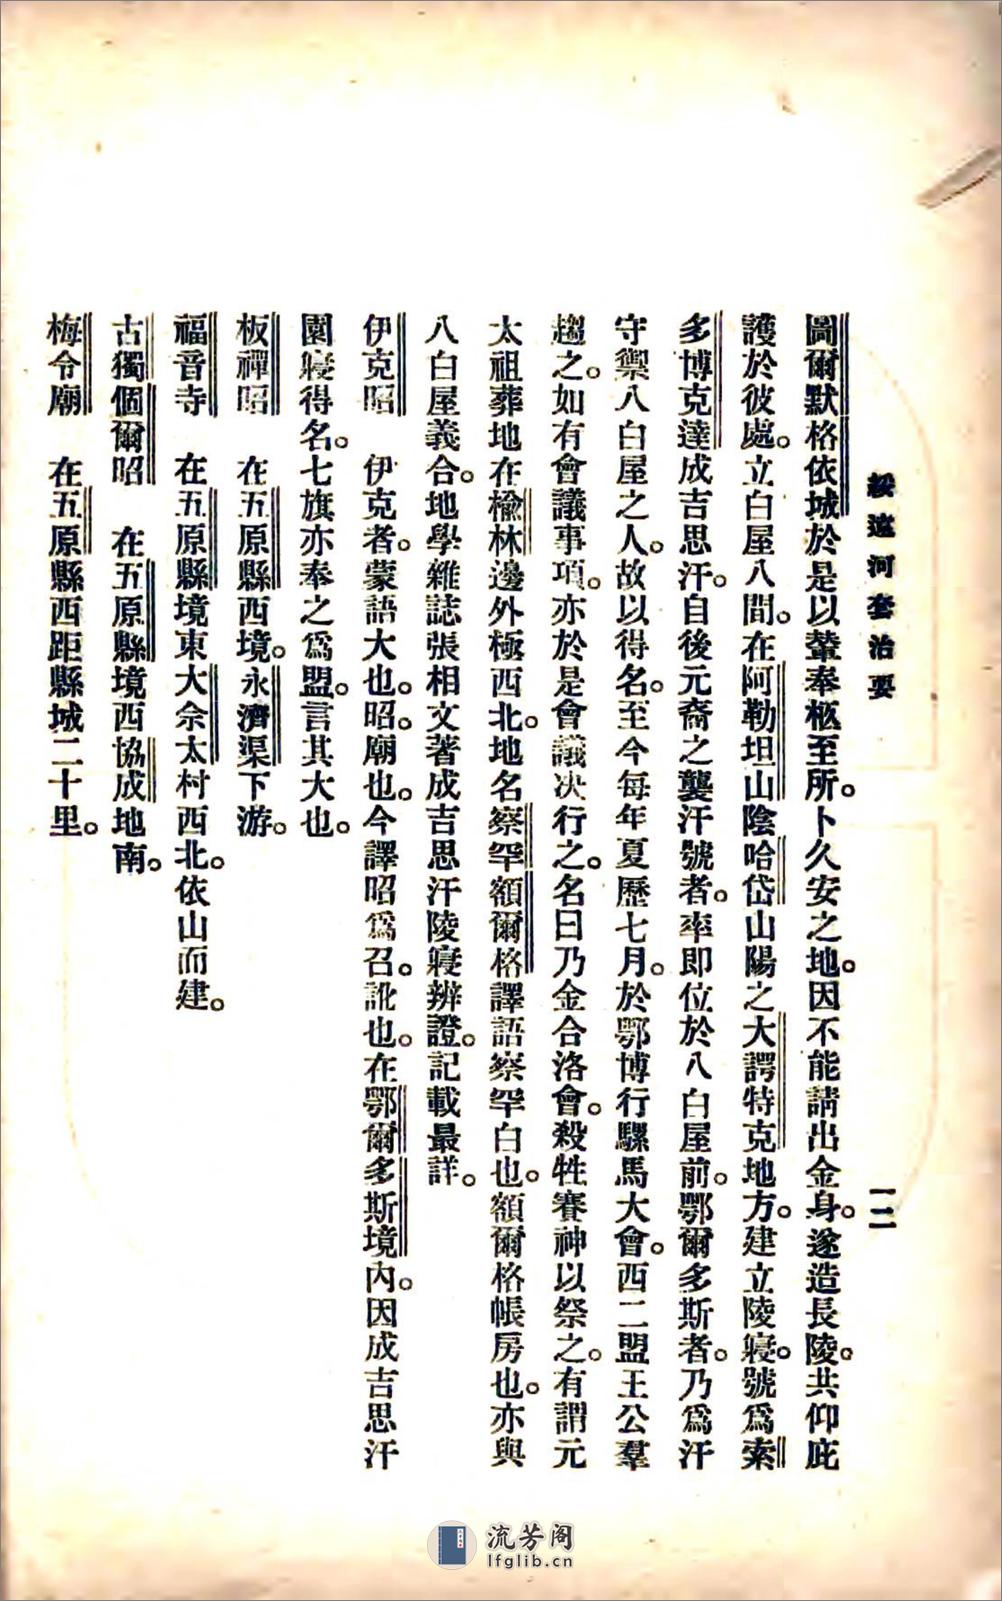 綏遠河套治要
一二
圖爾默格依城於是以輦奉柩至所。卜久安之地。因不能請出金身。遂造長陵。共仰庇
護於彼處。立白屋八間。在阿勒坦山陰哈岱山陽之大諤特克地方。建立陵寢。號爲索
多博克達成吉思汗。自後元裔之襲汗號者。率即位於八白屋前。鄂爾多斯者。乃爲汗
守禦八白屋之人。故以得名。至今每年夏歷七月。於鄂博行騾馬大會。西二盟王公羣
趨之。如有會議事項。亦於是會議決行之。名曰乃金合洛會。殺牲賽神以祭之。有謂元
太祖葬地在榆林邊外極西北。地名察罕額爾格譯語察罕白也。額爾格帳房也。亦與
八白屋義合。地學雜誌張相文著成吉思汗陵寢辨證。記載最詳。
伊克昭　伊克者。蒙語大也。昭。廟也。今譯昭爲召。訛也。在鄂爾多斯境內。因成吉思汗
園寢得名。七旗亦奉之爲盟。言其大也。
板禪昭　在五原縣西境。永濟渠下游。
福音寺　在五原縣境東大佘太村西北。依山而建。
古獨個爾昭　在五原縣境西協成地南。
梅令廟　在五原縣西距縣城二十里。
流芳阁
lfglib.cn